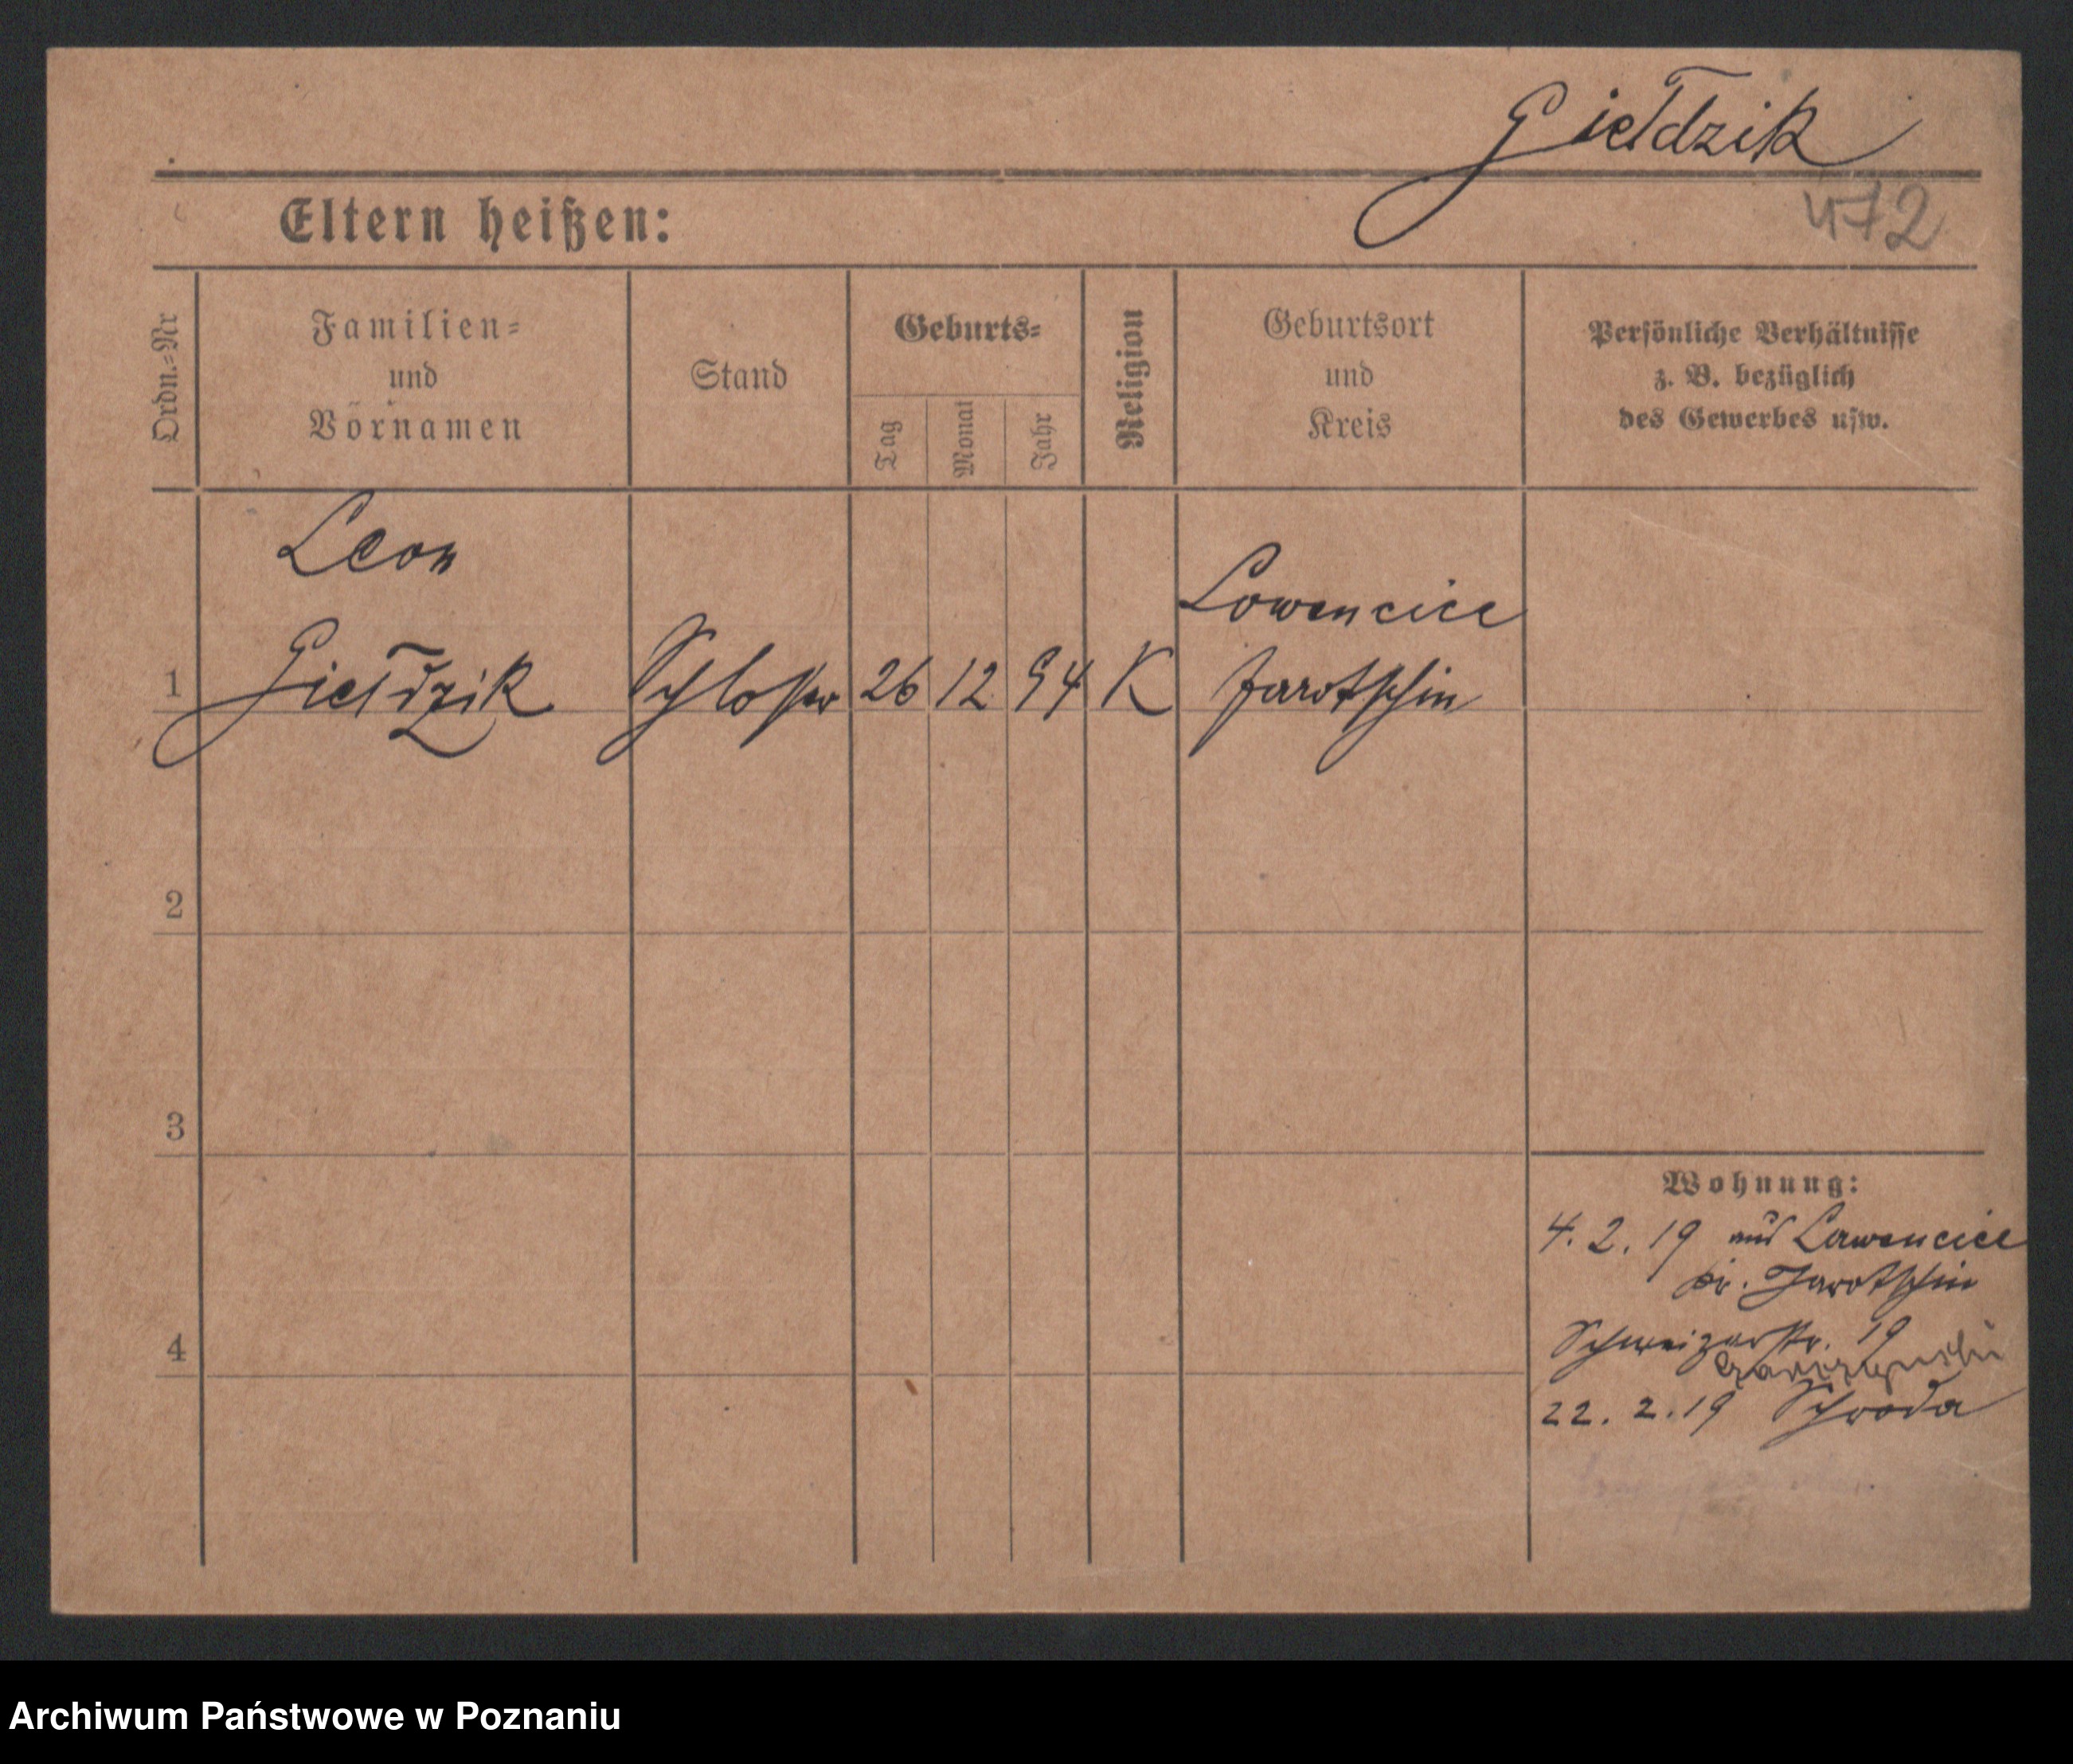 Gieldzik
472
Eltern heißen:
Ordn.=Nr
Familien=
und
Vornamen
Stand
Geburts=
Tag
Monat
Jahr
Religion
Geburtsort
und
Kreis
Persönliche Verhältnisse
z. B. bezüglich
des Gewerbes usw.
Leon
1 Gieldzik Schlosser 26 12 94 K
Lowencice
Jarotschin
2
3
4
Wohnung:
4. 2. 19 aus Lowencice
Kr. Jarotschin
Schweizerstr. 19
22. 2. 19 Schroda
Archiwum Państwowe w Poznaniu